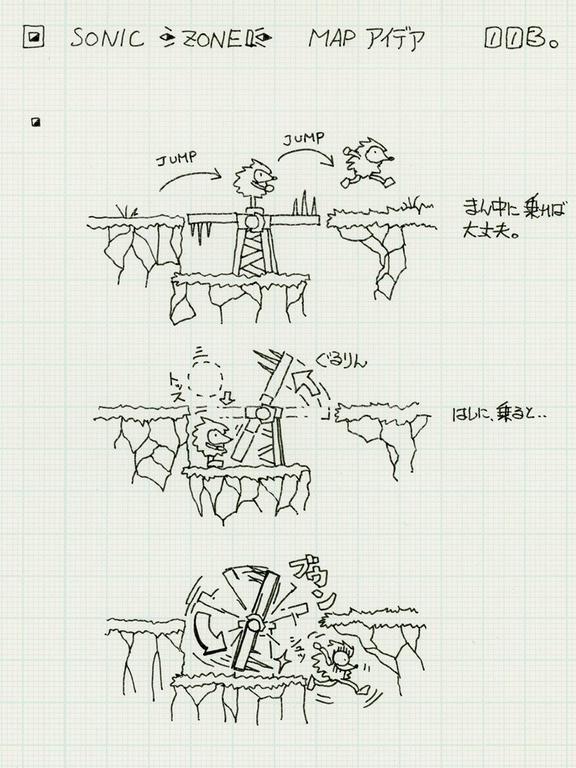 SONIC ZONE MAP アイデア 113。
JUMP
JUMP
まん中に乗れば
大丈夫。
トッス
ぐるりん
はしに、乗ると..
ブウン
シュッ